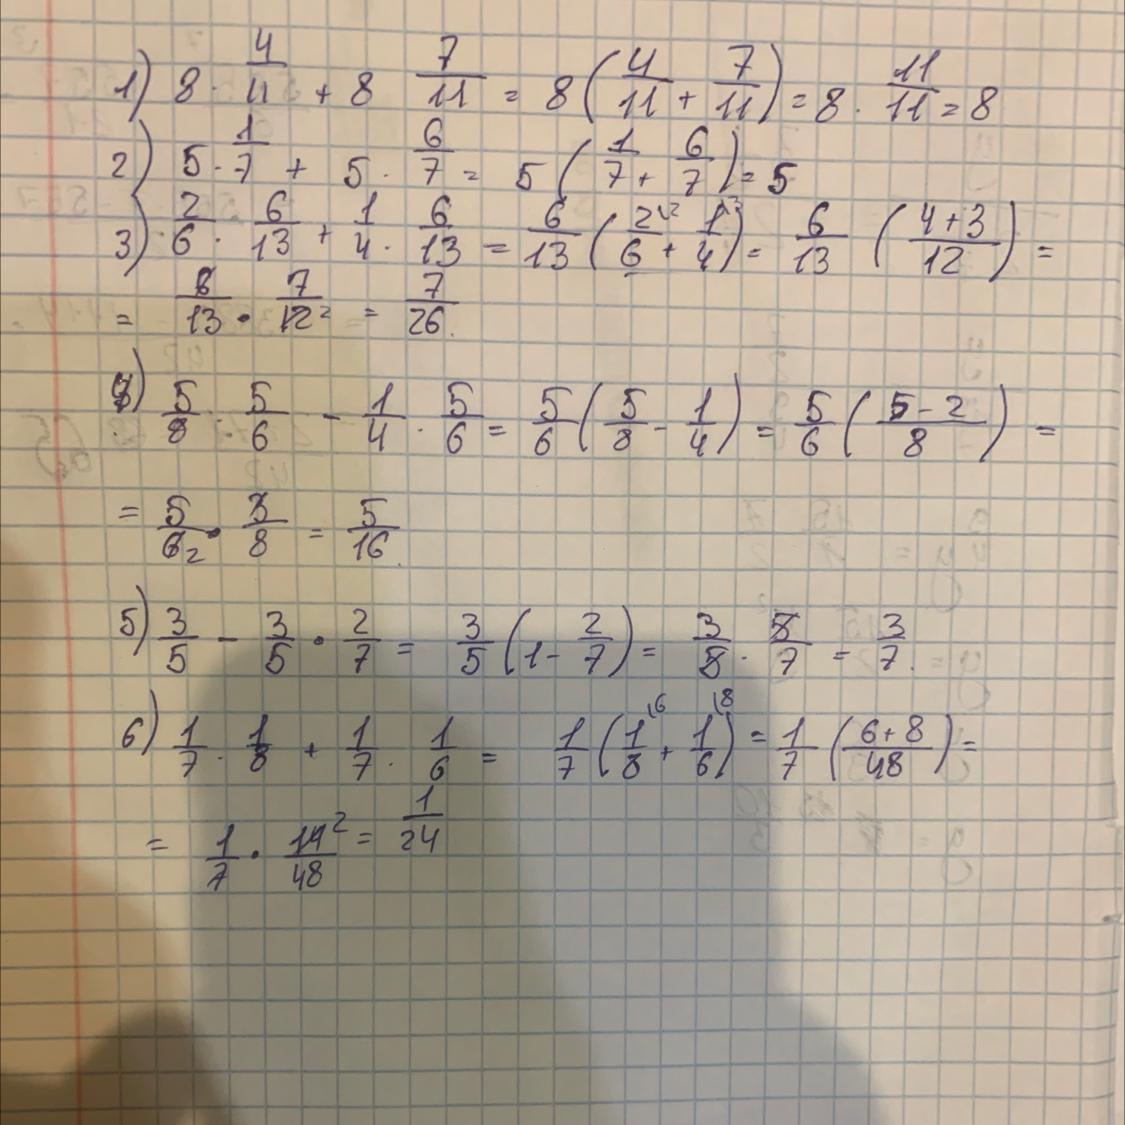 1) 8 · 4/11 + 8 7/11 = 8 (4/11 + 7/11) = 8 · 11/11 = 8
2) 5 · 1/7 + 5 · 6/7 = 5 (1/7 + 6/7) = 5
3) 2/6 · 6/13 + 1/4 · 6/13 = 6/13 (2/6 + 1/4) = 6/13 (4+3/12) =
= 6/13 · 7/12 2 = 7/26.
5/8 · 5/6 - 1/4 · 5/6 = 5/6 (5/8 - 1/4) = 5/6 (5-2/8) =
= 5/6 2 · 3/8 = 5/16.
5) 3/5 - 3/5 · 2/7 = 3/5 (1 - 2/7) = 3/5 · 5/7 = 3/7.
6) 1/7 · 1/8 + 1/7 · 1/6 = 1/7 (1/8 \6 + 1/6 \8) = 1/7 (6+8/48) =
= 1/7 · 14 2/48 = 1/24